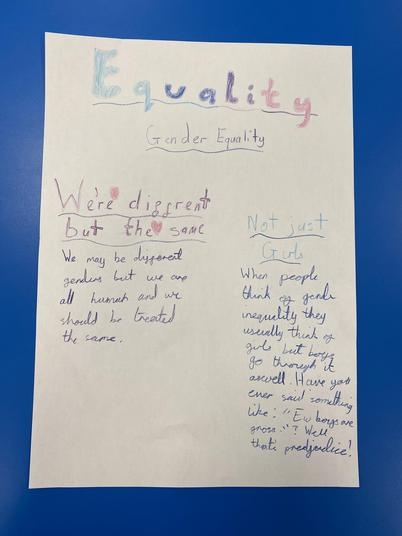 Equality
Gender Equality
We're diffrent
but the same
We may be different
genders but we are
all human and we
should be treated
the same.
Not just
Girls
When people
think of gender
inequality they
usually think of
girls but boys
go through it
aswell. Have you
ever said something
like: "Ew boys are
gross."? Well
that's predjudice!